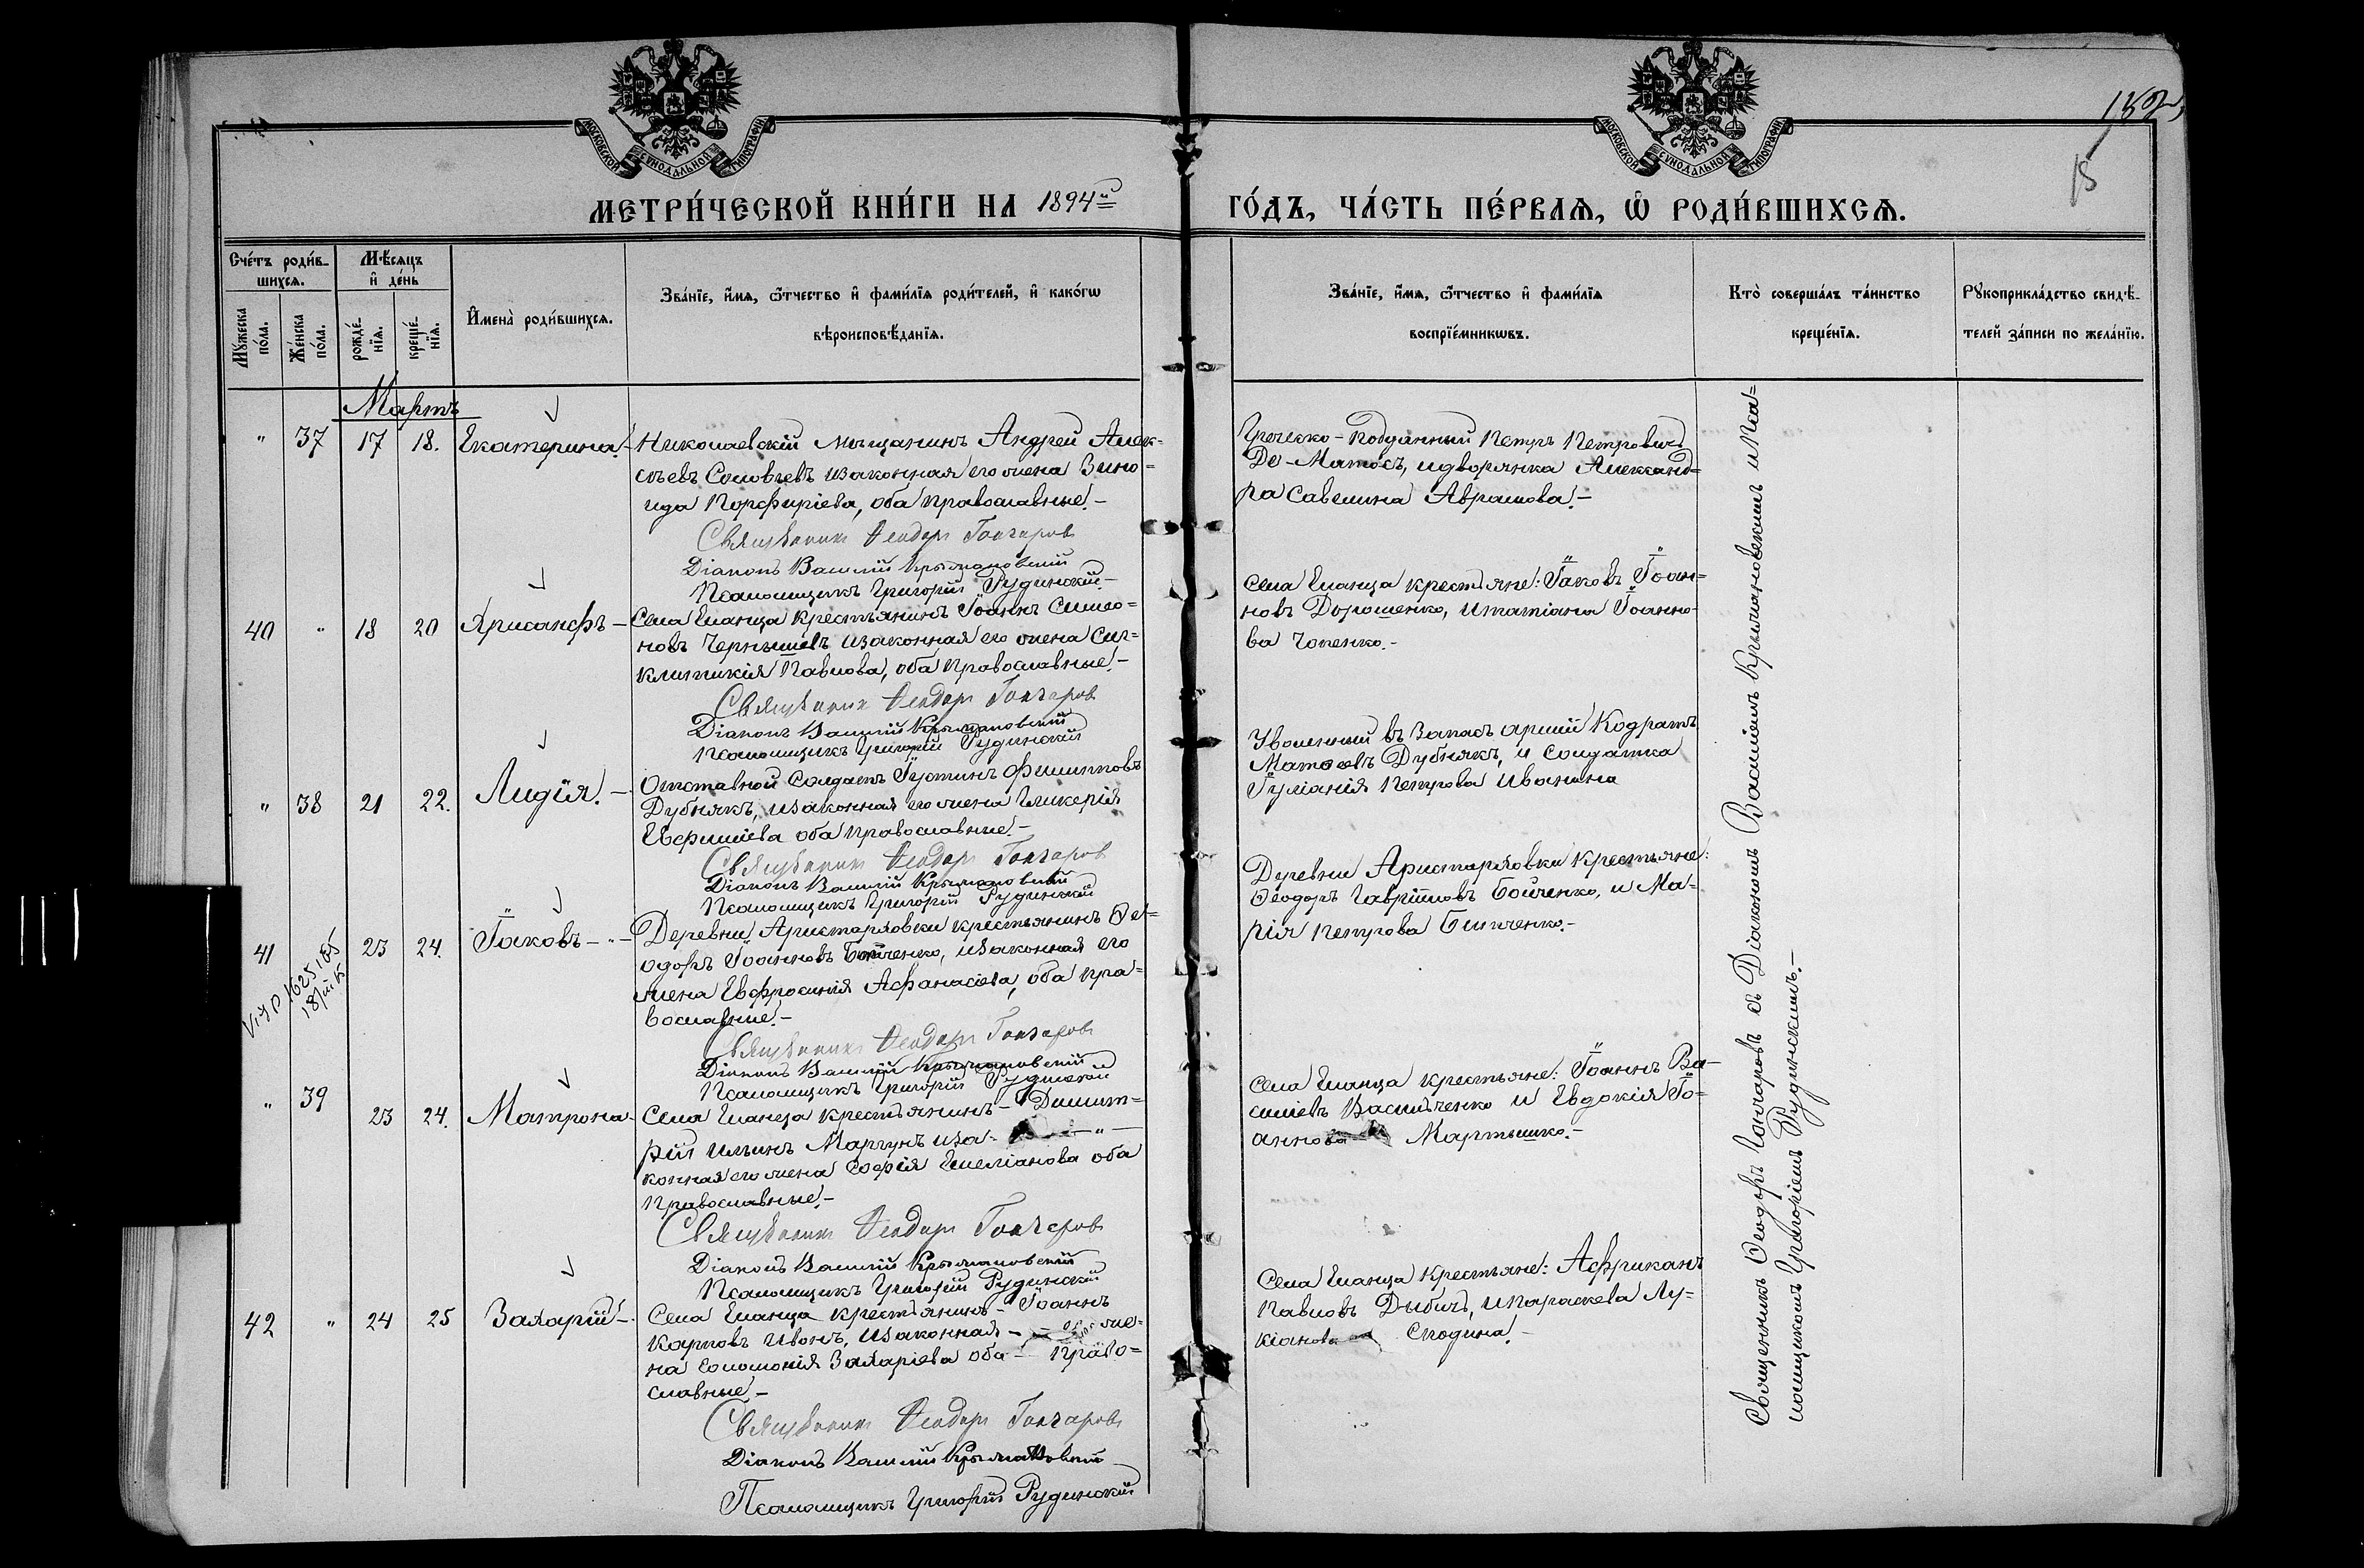 МОСКОВСКОЙ СѴНОДАЛЬНОЙ ТИПОГРАФІИ
МОСКОВСКОЙ СѴНОДАЛЬНОЙ ТИПОГРАФІИ
15
МЕТРИ́ЧЕСКОЙ КНИ́ГИ НА 1894й
ГО́ДЪ, ЧА́СТЬ ПЕ́РВАѦ, Ѡ РОДИ́ВШИХСѦ.
Сче́тъ роди́в-
шихсѧ.
Мѣ́сѧцъ
и҆ де́нь
Мꙋ́жеска
по́ла.
Же́нска
по́ла.
рожде́-
нїѧ.
креще́-
нїѧ.
И҆мена̀ роди́вшихсѧ.
Зва́нїе, и҆́мѧ, ѻ҆́тчество и҆ фами́лїѧ роди́телей, и҆ како́гѡ
вѣроисповѣ́данїѧ.
Зва́нїе, и҆́мѧ, ѻ҆́тчество и҆ фами́лїѧ
воспрїе́мникѡвъ.
Кто̀ соверша́лъ та́инство
креще́нїѧ.
Рꙋкоприкла́дство свидѣ́-
телей за́писи по жела́нїю.
Мартъ
" 37 17 18. Екатерина.-
Николаевскій мѣщанинъ Андрей Алек-
сѣевъ Соловьевъ изаконная его жена Зино-
ида Порфиріева, оба православные.-
Священникъ Феодоръ Гончаров
Діаконъ Василій Крыжановскій
Псаломщикъ Григорій Рудинскій-
Греческо-подданный Петръ Петровичъ
Де-Матосъ, идворянка Александ-
ра Савелина Аврамова.-
40 " 18 20 Хрисанфъ-
Села Еланца крестьянинъ Іоаннъ Симео-
новъ Чернышевъ изаконная его жена Син-
клитикія Павлова, оба православные.-
Священникъ Феодоръ Гончаров
Діаконъ Василій Крыжановскій
Псаломщикъ Григорій Рудинскій
Села Еланца крестьяне: Іаковъ Іоан-
новъ Дорошенко, иТатіана Іоанно-
ва Чопенко.-
" 38 21 22. Лидія.-
Отставной солдатъ Іустинъ Филипповъ
Дубнякъ, изаконная его жена Гликерія
Евфиміева оба православные.-
Священникъ Феодоръ Гончаров
Діаконъ Василій Крыжановскій
Псаломщикъ Григорій Рудинскій
Уволенный въ запасъ арміи Кодратъ
Матѳеевъ Дубнякъ, и солдатка
Іуліанія Петрова Иванина
41 23 24. Іаковъ-"-
Деревни Аристарховки крестьянинъ Ѳе-
одоръ Іоанновъ Бойченко, изаконная его
жена Евфросинія Афанасіева, оба пра-
вославные.-
Священникъ Феодоръ Гончаров
Діаконъ Василій Крыжановскій
Псаломщикъ Григорій Рудинскій
Деревни Аристарховки крестьяне:
Ѳеодоръ Гавріиловъ Бойченко, и Ма-
рія Петрова
" 39 23 24. Матрона-
Села Еланца крестьянинъ- Димит-
рій Ильинъ Маргунъ иза-
конная его жена Софія Емеліанова оба
православные.-
Священникъ Феодоръ Гончаров
Діаконъ Василій Крыжановскій
Псаломщикъ Григорій Рудинскій
Села Еланца крестьяне: Іоаннъ Ва-
силіевъ Васильченко и Евдокія Іо-
аннова Мартышко.-
42 " 24 25 Захарій-
Села Еланца крестьянинъ- Іоаннъ
Карповъ Ивонъ, изаконная - его же-
на Соломонія Захаріева оба- право-
славные.-
Священникъ Феодоръ Гончаров
Діаконъ Василій Крыжановскій
Псаломщикъ Григорій Рудинскій
Села Еланца крестьяне: Африканъ
Павловъ Дыбичъ, иПараскева Лу-
кіанова Сподина.-
Священникъ Ѳеодоръ Гончаровъ съ Діакономъ Василіемъ Крыжановскимъ иПса-
ломщикомъ Григоріемъ Рудинскимъ.-